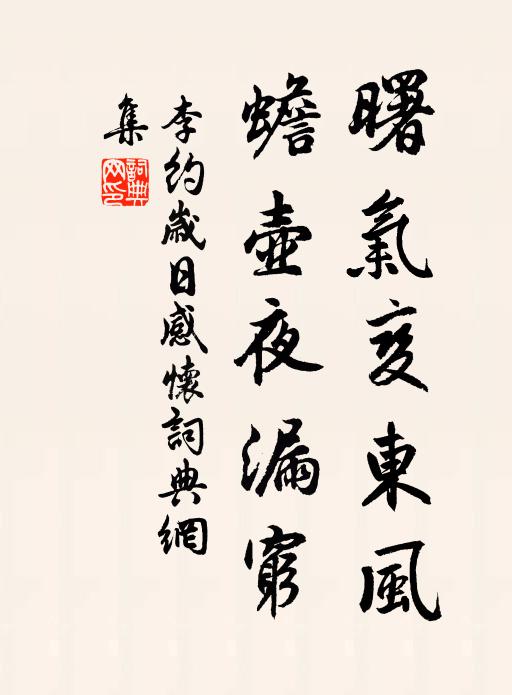 曙氣變東風
蟾壺夜漏窮
李約歲日感懷詞典網
集
詞典網印